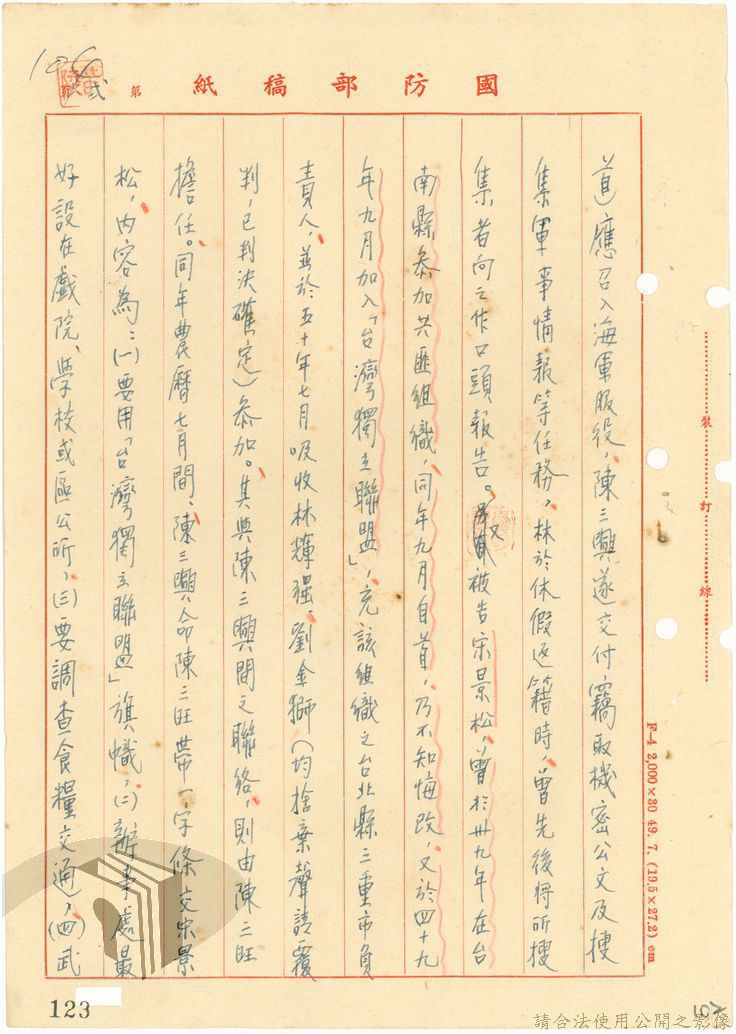 國防部稿紙 第
道應召入海軍服役，陳三興遂交付竊取機密公文及搜
集軍事情報等任務，林於休假返籍時，曾先後將所搜
集者向之作口頭報告。又被告宋景松，曾於卅九年在台
南縣參加共匪組織，同年九月自首，乃不知悔改，又於四十九
年九月加入「台灣獨立聯盟」，充該組織之台北縣三重市負
責人，並於五十年七月吸收林輝强、劉金獅（均捨棄聲請覆
判，已判決確定）參加。其與陳三興間之聯絡，則由陳三旺
擔任。同年農曆七月間，陳三興命陳三旺帶一字條交宋景
松，內容為：(一)要用「台灣獨立聯盟」旗幟，(二)辦事處最
好設在戲院、學校或區公所，(三)要調查食糧交通，(四)武
裝訂線
F-4 2,000×30 49. 7. (19.5×27.2) cm
123
請合法使用公開之影像